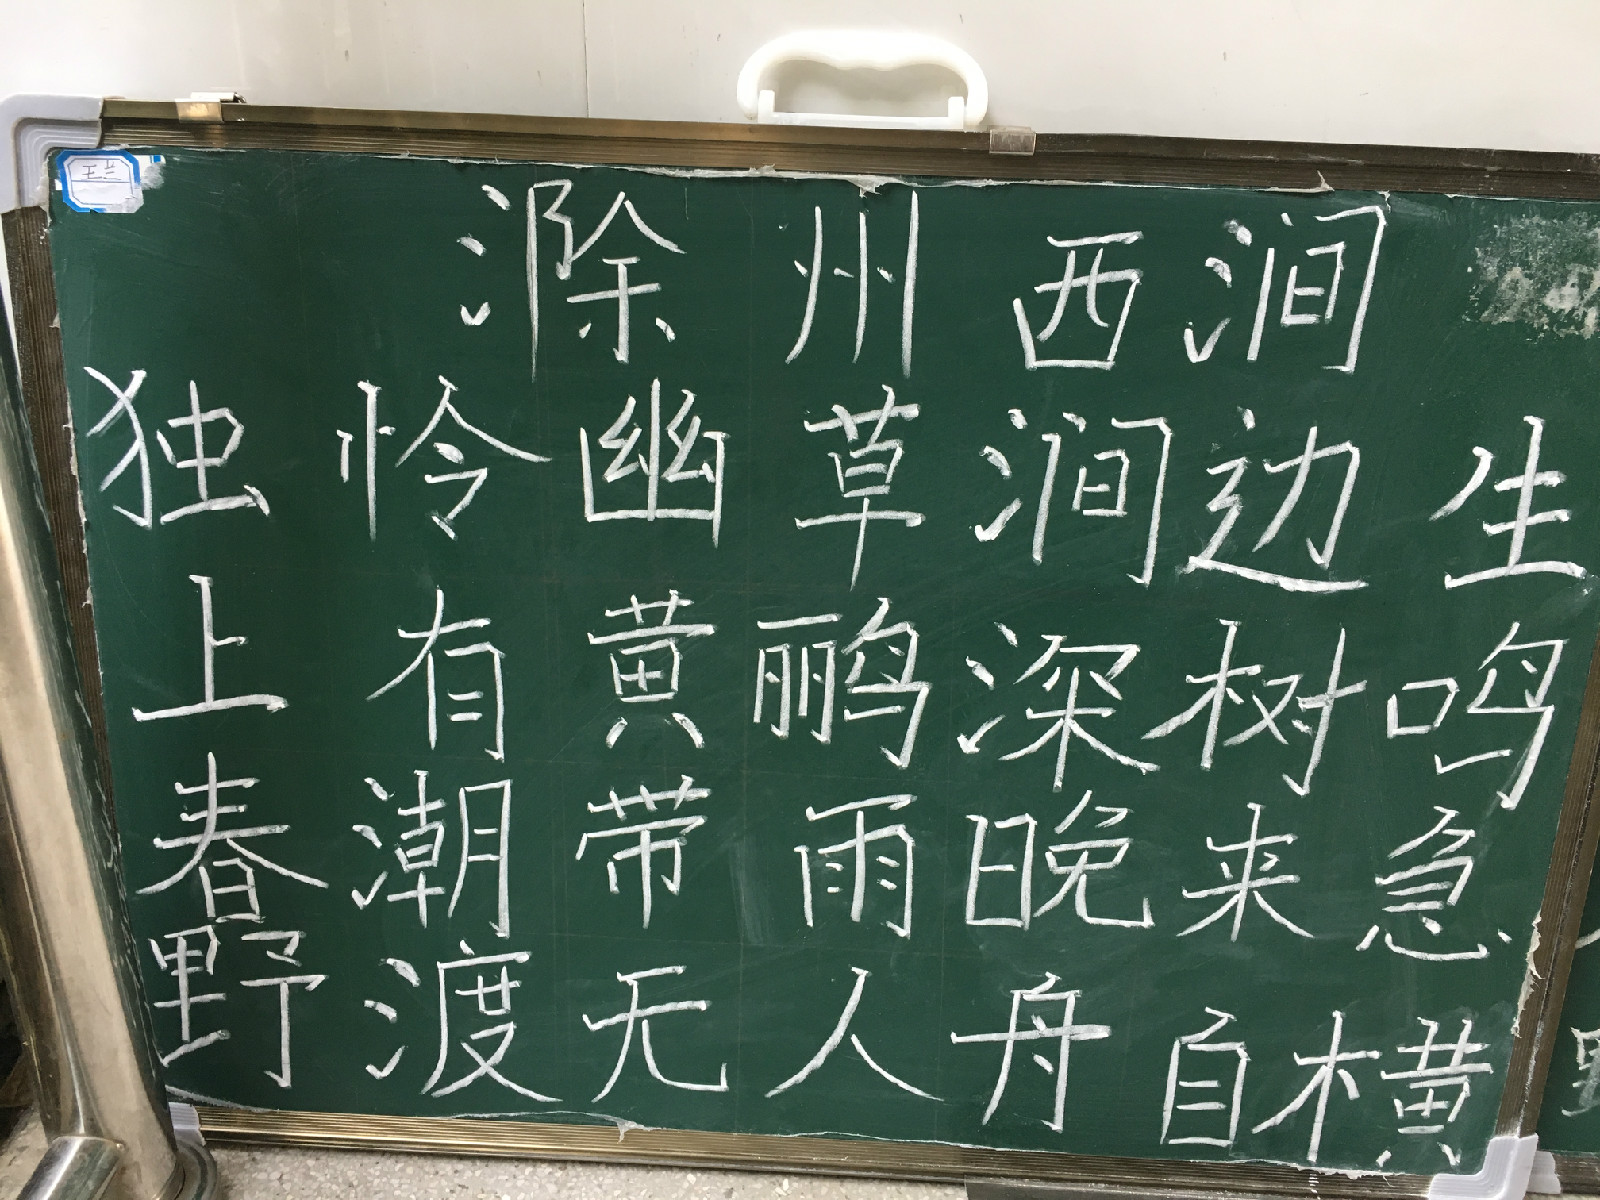 王兰
滁州西涧
独怜幽草涧边生
上有黄鹂深树鸣
春潮带雨晚来急
野渡无人舟自横